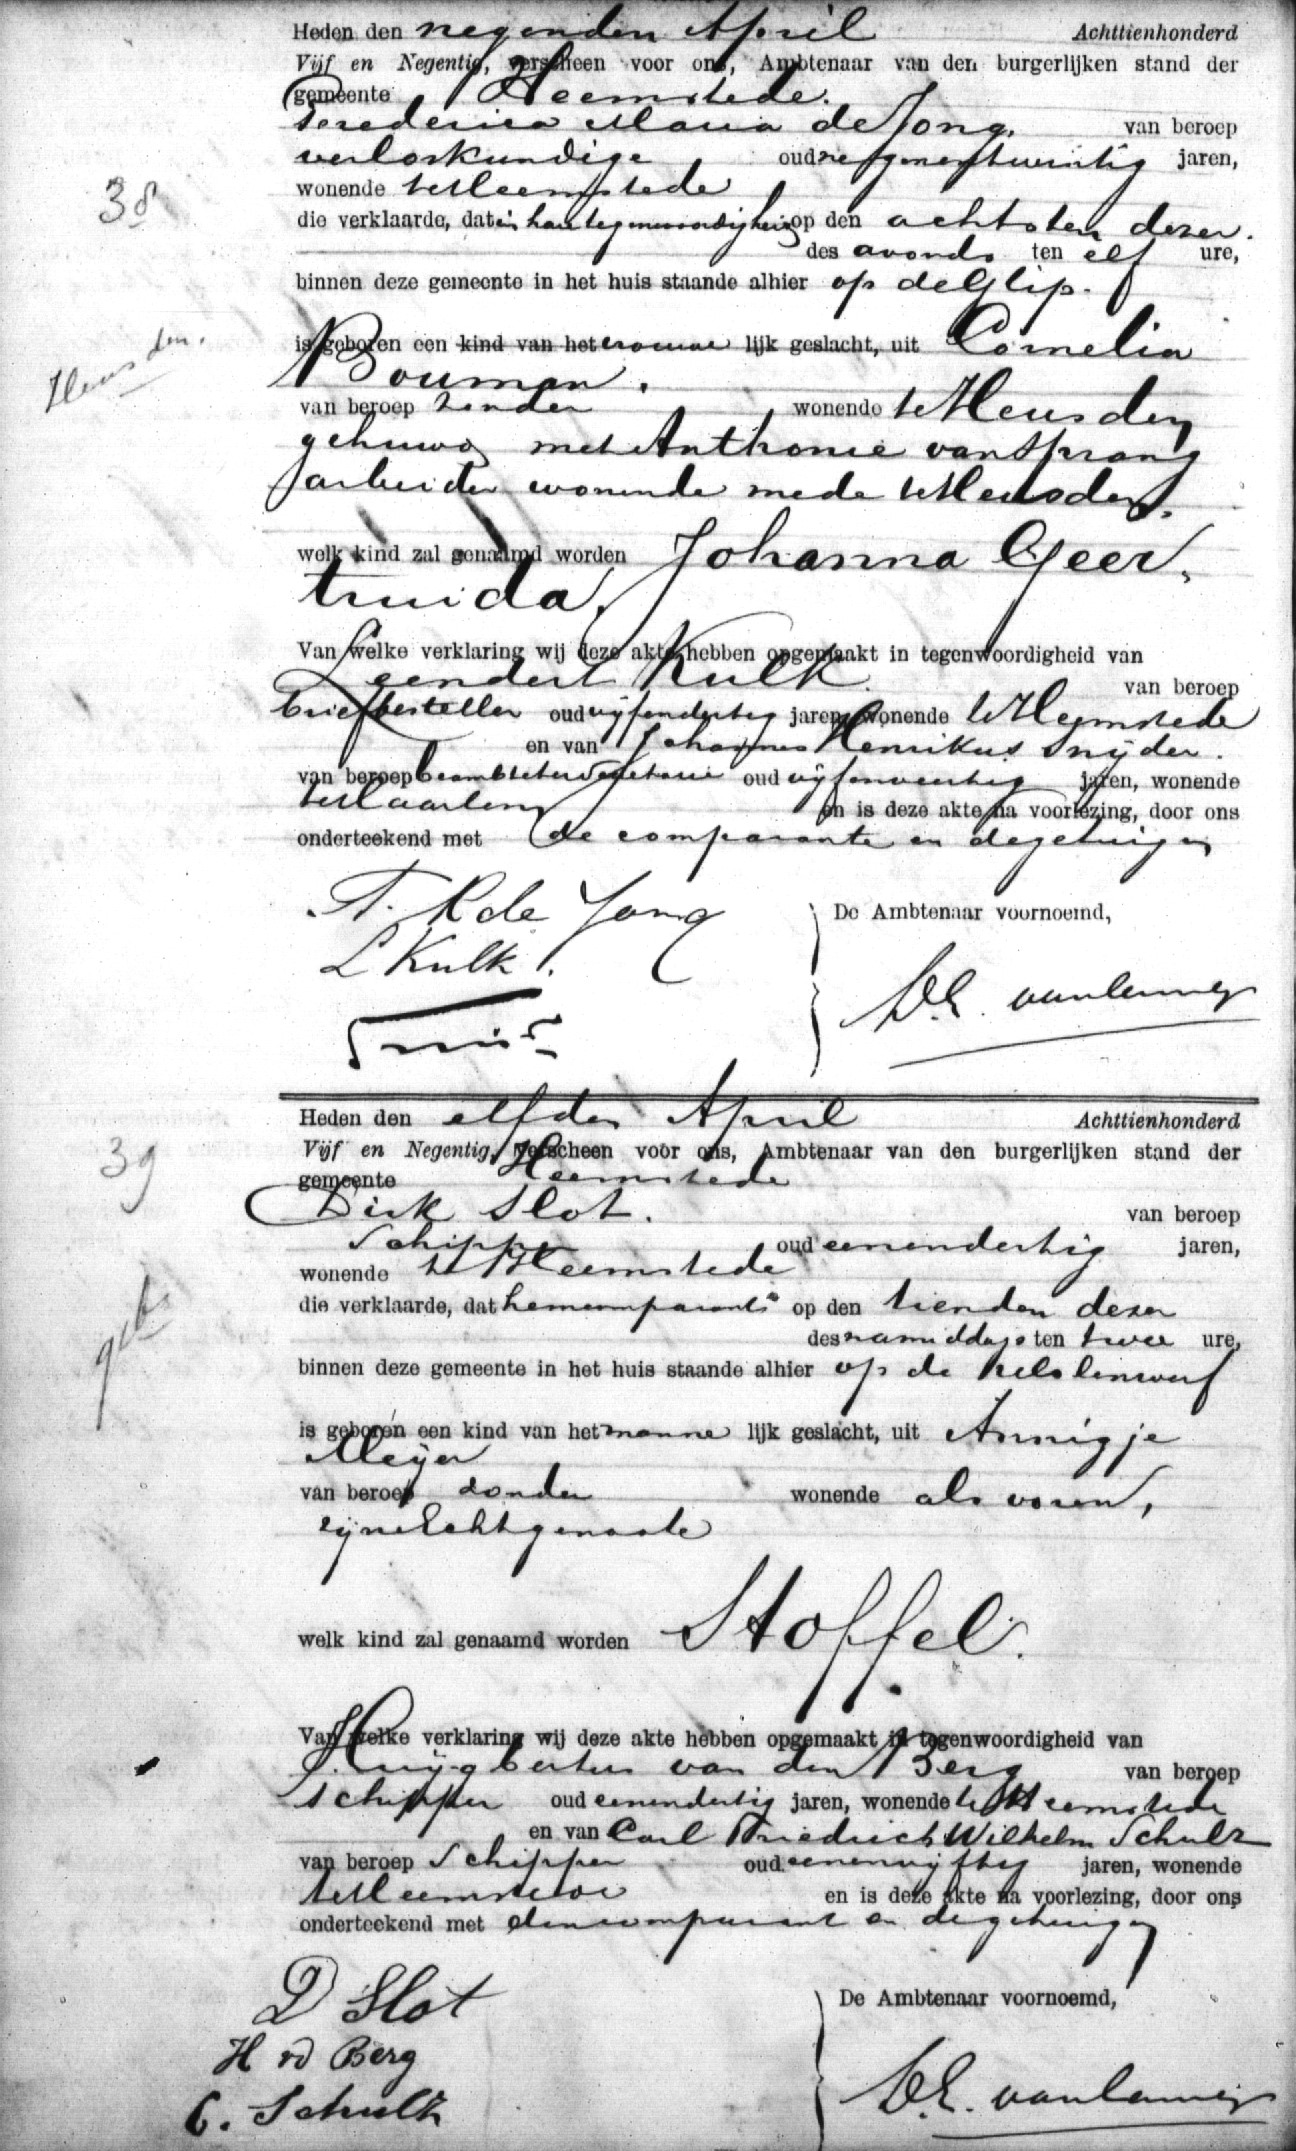 Heden den negenden April Achttienhonderd
Vijf en Negentig, verscheen voor ons, Ambtenaar van den burgerlijken stand der
gemeente Heemstede.
Frederica Maria de Jong, van beroep
verloskundige oud negenentwintig jaren,
wonende te Heemstede
38
die verklaarde, dat in hare tegenwoordigheid op den achtsten dezer.
des avonds ten elf ure,
binnen deze gemeente in het huis staande alhier op de Glip.
Heusden.
is geboren een kind van het vrouwe lijk geslacht, uit Cornelia
Bouman.
van beroep zonder wonende te Heusden
gehuwd met Anthonie van Sprang
arbeider wonende mede te Heusden.
welk kind zal genaamd worden Johanna Geer,
truida.
Van welke verklaring wij deze akte hebben opgemaakt in tegenwoordigheid van
Leendert Kulk van beroep
briefbesteller oud vijfendertig jaren, wonende te Heemstede
en van Johannes Henrikus Snijder.
van beroep beambte ter Secretarie oud vijfenveertig jaren, wonende
te Haarlem en is deze akte na voorlezing, door ons
onderteekend met de comparante en de getuigen
De Ambtenaar voornoemd,
de Jong
L Kulk.
D.E. van Lennep
Heden den elfden April Achttienhonderd
Vijf en Negentig, verscheen voor ons, Ambtenaar van den burgerlijken stand der
39
gemeente Heemstede
Dirk Slot. van beroep
Schipper oud eenendertig jaren,
wonende te Heemstede
die verklaarde, dat hem comparant op den tienden dezer
des namiddags ten twee ure,
geb
binnen deze gemeente in het huis staande alhier op de
is geboren een kind van het manne lijk geslacht, uit Annigje
Meijer
van beroep zonder wonende als voren,
zijne Echtgenoote
welk kind zal genaamd worden Stoffel.
Van welke verklaring wij deze akte hebben opgemaakt in tegenwoordigheid van
Huijgbertus van den Berg van beroep
schipper oud eenendertig jaren, wonende te Heemstede
en van Carl Friedrich Wilhelm Schulz
van beroep Schipper oud eenenvijftig jaren, wonende
te Heemstede en is deze akte na voorlezing, door ons
onderteekend met den comparant en de getuigen
D Slot
De Ambtenaar voornoemd,
H vd Berg
C. Schultz
D.E. van Lennep